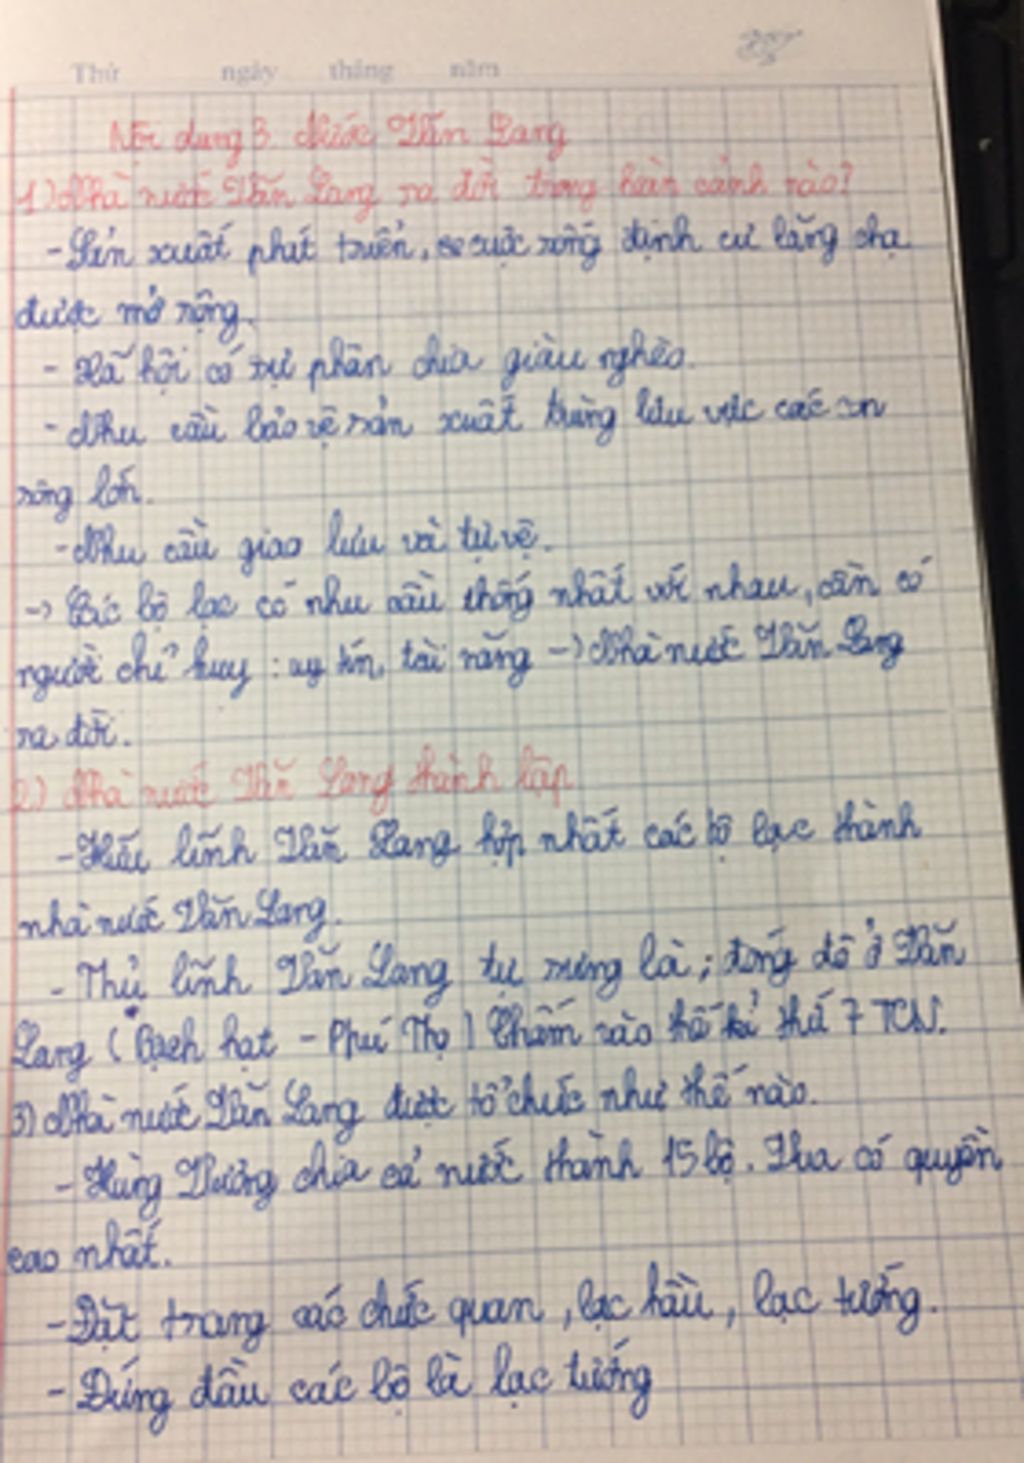 Thứ ngày tháng năm
Nội dung 3. Nước Văn Lang
1) Nhà nước Văn Lang ra đời trong hàn cảnh nào?
- Sản xuất phát triển, cuộc sống định cư làng chạ
được mở rộng.
- Xã hội có sự phân chia giàu nghèo.
- Nhu cầu bảo vệ sản xuất trùng lưu vực các con
sông lớn.
- Nhu cầu giao lưu và tự vệ.
-> Các bộ lạc có nhu cầu thống nhất với nhau, cần có
người chỉ huy : uy tín, tài năng -> Nhà nước Văn Lang
ra đời.
2) Nhà nước Văn Lang thành lập
- lĩnh Văn Lang hợp nhất các bộ lạc thành
nhà nước Văn Lang.
- Thủ lĩnh Văn Lang tự xưng là ; đóng đô ở Văn
Lang ( Bạch hạt - Phú Thọ ) vào thế kỉ thứ 7 TCN.
3) Nhà nước Văn Lang được tổ chức như thế nào.
- Hùng Vương chia cả nước thành 15 bộ. Vua có quyền
cao nhất.
- Đặt trang các chức quan, lạc hầu, lạc tướng.
- Đứng đầu các bộ là lạc tướng